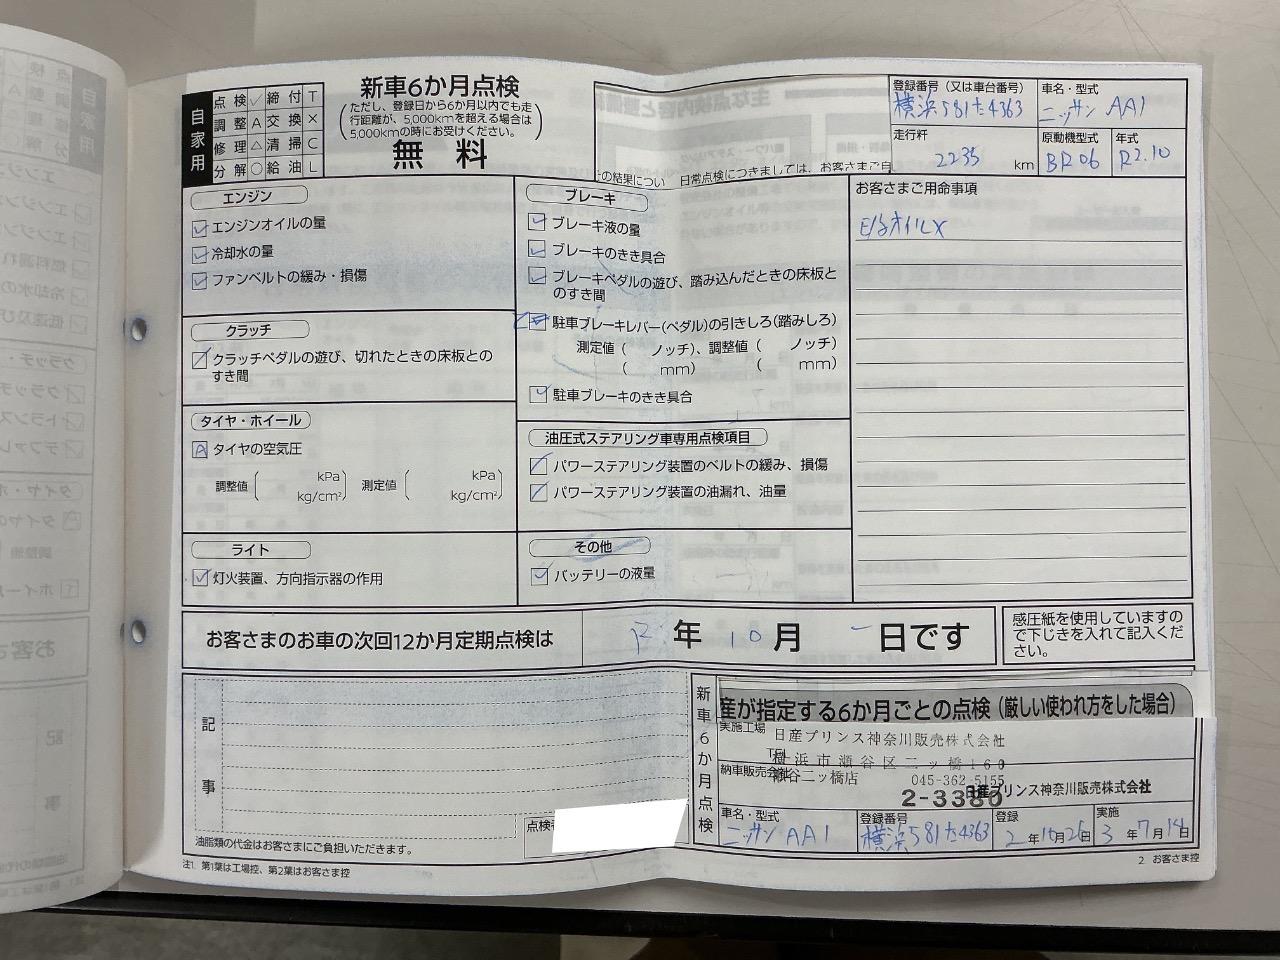 自家用
点検 ✓ 締付 T
調整 A 交換 ×
修理 △ 清掃 C
分解 ○ 給油 L
新車6か月点検
(ただし、登録日から6か月以内でも走
行距離が、5,000kmを超える場合は
5,000kmの時にお受けください。)
無料
主な点検内容と整備
の結果につい 日常点検につきましては、お客さまご自
登録番号(又は車台番号)
横浜581た4363
車名・型式
ニッサン AA1
走行粁
2235 km
原動機型式
BR06
年式
R2.10
エンジン
エンジンオイルの量
冷却水の量
ファンベルトの緩み・損傷
クラッチ
クラッチペダルの遊び、切れたときの床板との
すき間
タイヤ・ホイール
A タイヤの空気圧
調整値( kPa kg/cm²) 測定値( kPa kg/cm²)
ライト
灯火装置、方向指示器の作用
ブレーキ
ブレーキ液の量
ブレーキのきき具合
ブレーキペダルの遊び、踏み込んだときの床板と
のすき間
駐車ブレーキレバー(ペダル)の引きしろ(踏みしろ)
測定値( ノッチ)、調整値( ノッチ)
( mm) ( mm)
駐車ブレーキのきき具合
油圧式ステアリング車専用点検項目
パワーステアリング装置のベルトの緩み、損傷
パワーステアリング装置の油漏れ、油量
その他
バッテリーの液量
お客さまご用命事項
E/gオイルX
お客さまのお車の次回12か月定期点検は
年 10月 日です
感圧紙を使用していますの
で下じきを入れて記入くだ
さい。
記事
点検
油脂類の代金はお客さまにご負担いただきます。
新車6か月点検
産が指定する6か月ごとの点検(厳しい使われ方をした場合)
実施工場
日産プリンス神奈川販売株式会社
横浜市瀬谷区二ッ橋160
納車販売会社
瀬谷二ッ橋店 045-362-5155
2-3380
日産プリンス神奈川販売株式会社
車名・型式
ニッサン AA1
登録番号
横浜581た4363
登録
2年10月26日
実施
3年7月14日
注1. 第1葉は工場控、第2葉はお客さま控
2. お客さま控